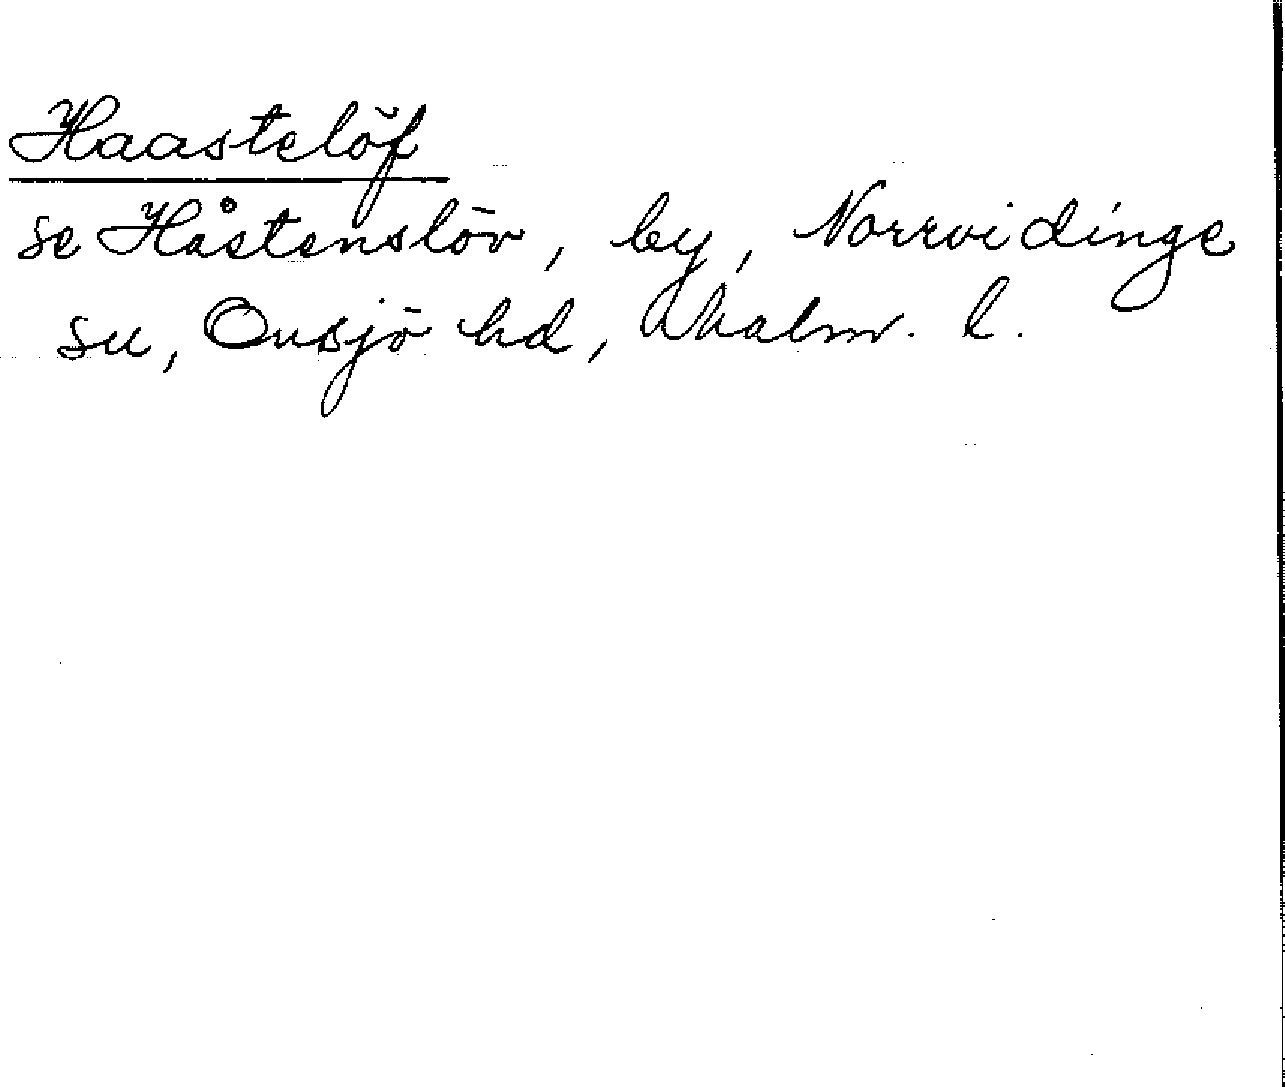 Haastelöf
se Håstenslöv, by, Norrvidinge
sn, Onsjö hd, Malm. l.